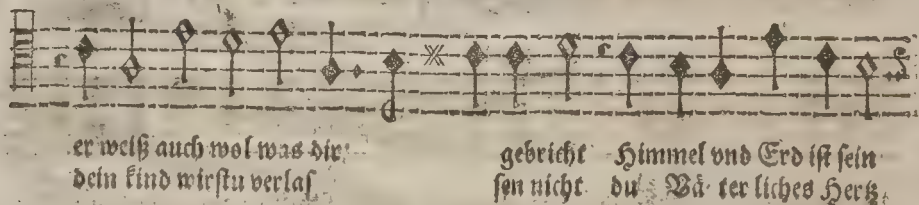 er weiß auch wol was dir gebricht Himmel vnd Erd ist sein
dein kind wirstu verlas sen nicht du Vä ter liches Hertz,